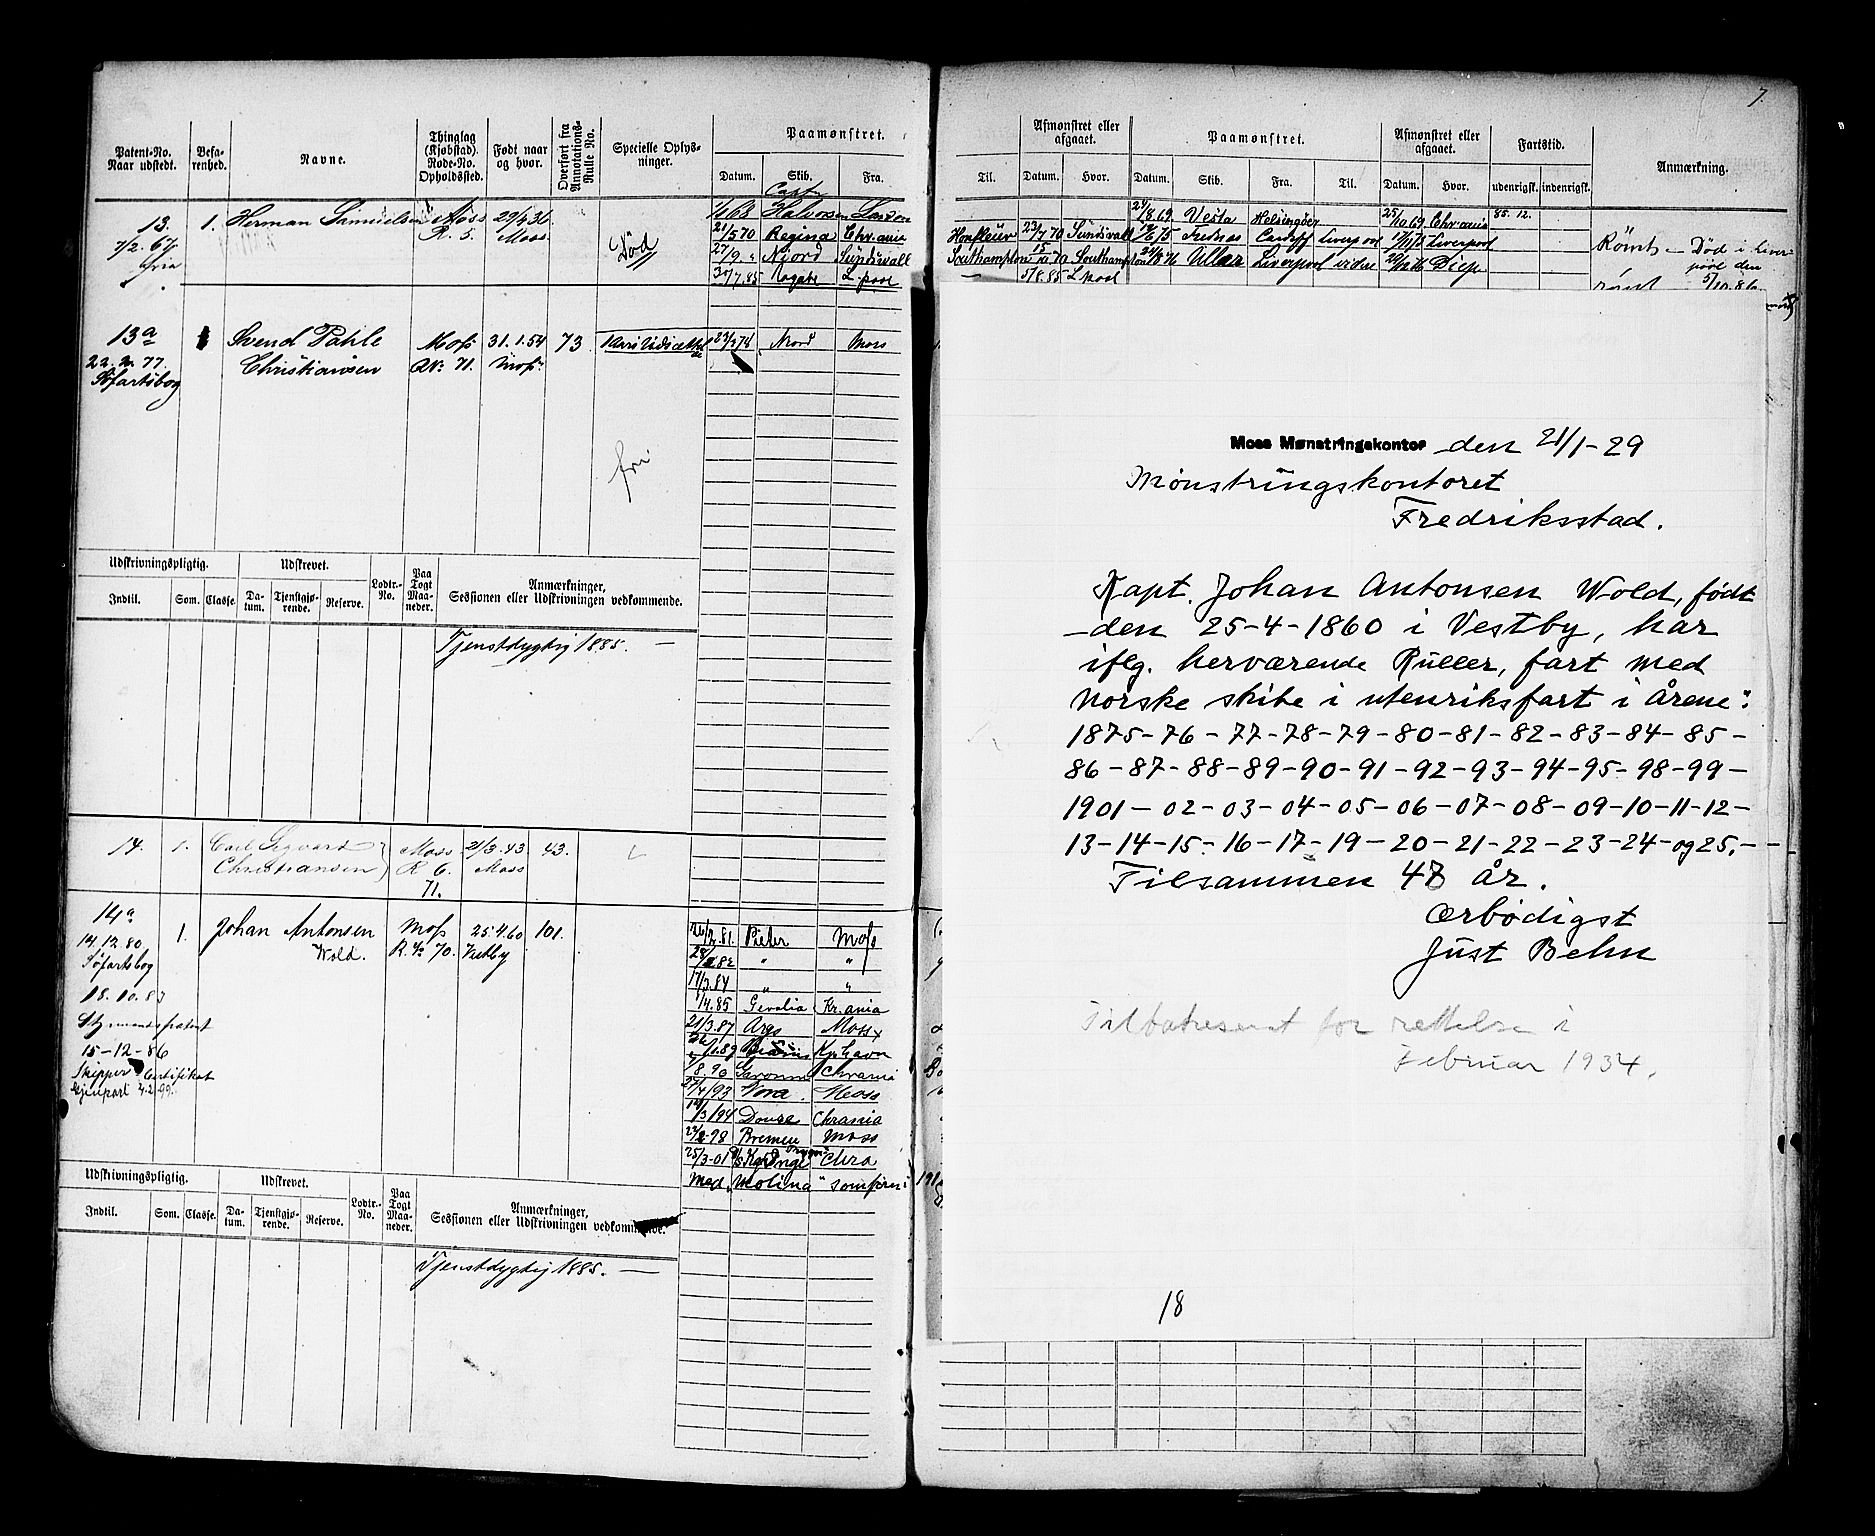 7.
Patent-No. Naar udstedt. Befarenhed. Navne. Thinglag (Kjøbstad). Rode-No. Opholdssted. Født naar og hvor. Overført fra Annotations-Rulle No. Specielle Oplysninger. Paamønstret. Datum. Skib. Fra.
Til. Afmønstret eller afgaaet. Datum. Hvor. Paamønstret. Datum. Skib. Fra. Til. Afmønstret eller afgaaet. Datum. Hvor. Fartstid. udenrigsk. indenrigsk. Anmærkning.
13. 1. Herman Samuelsen Moss 29/4 31
7/2. 67. R. 5. Moss.
Død
Halvorsen
21/5 70 Regina Chr.ania
27/9 " Njord Sundsvall
30/7.85 L.pool
21/8.69 Vesta Helsingöer 25/10 69 Chr.ania 85. 12.
Honfleur 23/7 70 Sundsvall Cardiff Liverpool Liverpool
Southampton Southampton Ullar Liverpool videre Diep
5/8.85 L.pool
Rømt — Død i Liverpool den
5/10.86.
rømt
13a Svend Pahle Moss 31.1.54 73 Mord Moss
22.2.77. Christiansen No. 71. Moss.
Söfartsbog
fri
Udskrivningspligtig. Udskrevet. Lodtr.-No. Paa Togt Maaneder. Anmærkninger, Sessionen eller Udskrivningen vedkommende.
Indtil. Som. Classe. Datum. Tjenstgjørende. Reserve.
Tjenstdygtig 1885. —
14. 1. Carl Sigvard Moss 21/3.43 43.
Christiansen R 6. Moss
71.
14a 1. Johan Antonsen Moss 25.4.60 101.
14.12.80 Wold. R. No. 70. Vestby
Söfartsbog
18.10.83
Styrmandspatent
15-12-86
Skipper Certifikat
Gjenpart 4.2.99.
26/2.81. Pieter Moss
" "
17/3.84 " "
1/4.85 Gevalia Kr.ania
21/3.87 Argo Moss
Kphavn
8.90 Garonne Chrania
27/4/93 Nora Moss
12/3/94 Douse Chrania
22/2-98 Bremen Moss
25/3-01 Chra
Med "Molina" som fører i 191
Udskrivningspligtig. Udskrevet. Lodtr.-No. Paa Togt Maaneder. Anmærkninger, Sessionen eller Udskrivningen vedkommende.
Indtil. Som. Classe. Datum. Tjenstgjørende. Reserve.
Tjenstdygtig 1885. —
Moss Mønstringskontor den 21/1-29
Mönstringskontoret
Fredriksstad.
Kapt. Johan Antonsen Wold, født
den 25-4-1860 i Vestby, har
iflg. herværende Ruller, fart med
norske skibe i utenriksfart i årene:
1875-76-77-78-79-80-81-82-83-84-85-
86-87-88-89-90-91-92-93-94-95-98-99-
1901-02-03-04-05-06-07-08-09-10-11-12-
13-14-15-16-17-19-20-21-22-23-24-og 25.-
Tilsammen 48 år.
Ærbødigst
Just Behn
Tilbakesent for rettelse i
Februar 1934.
18